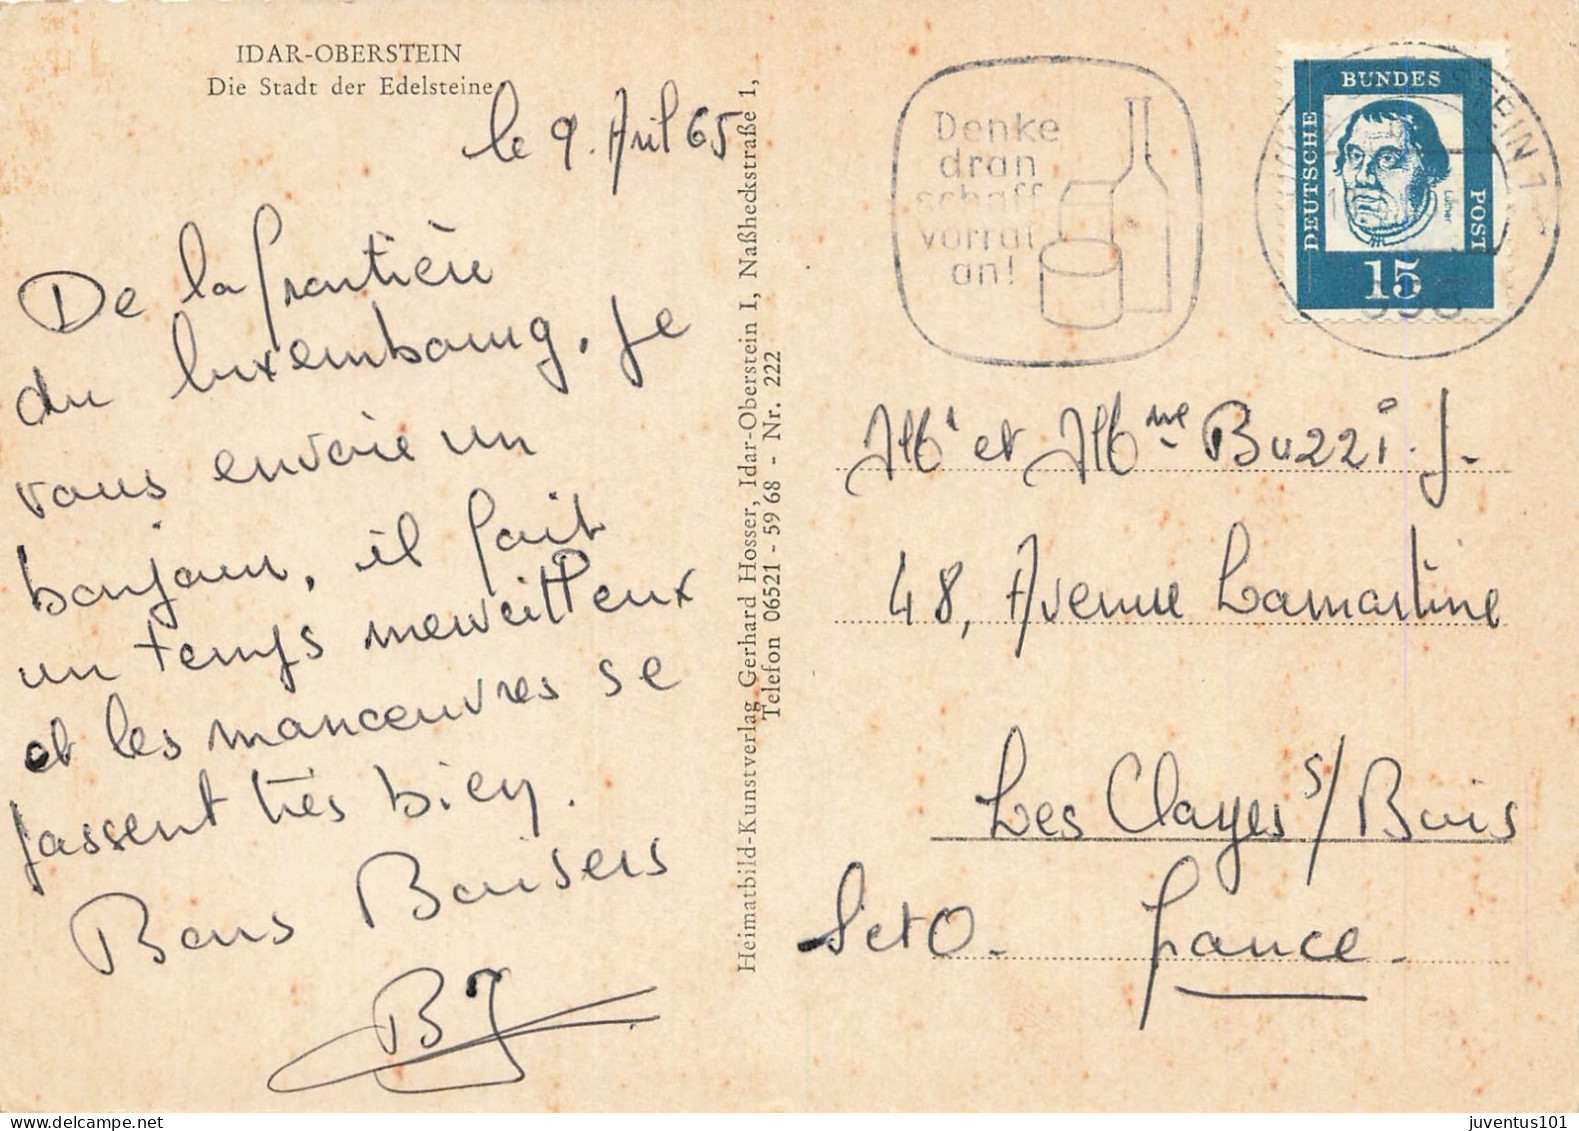 IDAR-OBERSTEIN
Die Stadt der Edelsteine
le 9. Avril 65
De la frontière
du luxembourg, je
vous envoie un
bonjour, il fait
un temps merveilleux
et les manoeuvres se
passent très bien.
Bons Baisers
BJ
Heimatbild-Kunstverlag Gerhard Hosser, Idar-Oberstein I, Naßheckstraße 1,
Telefon 06521 - 59 68 - Nr. 222
Denke
dran
schaff
vorrat
an!
BUNDES
DEUTSCHE
POST
Luther
15
Mr et Mme Buzzi. J.
48, Avenue Lamartine
Les Clayes s/Bois
S et O. France.
juventus101